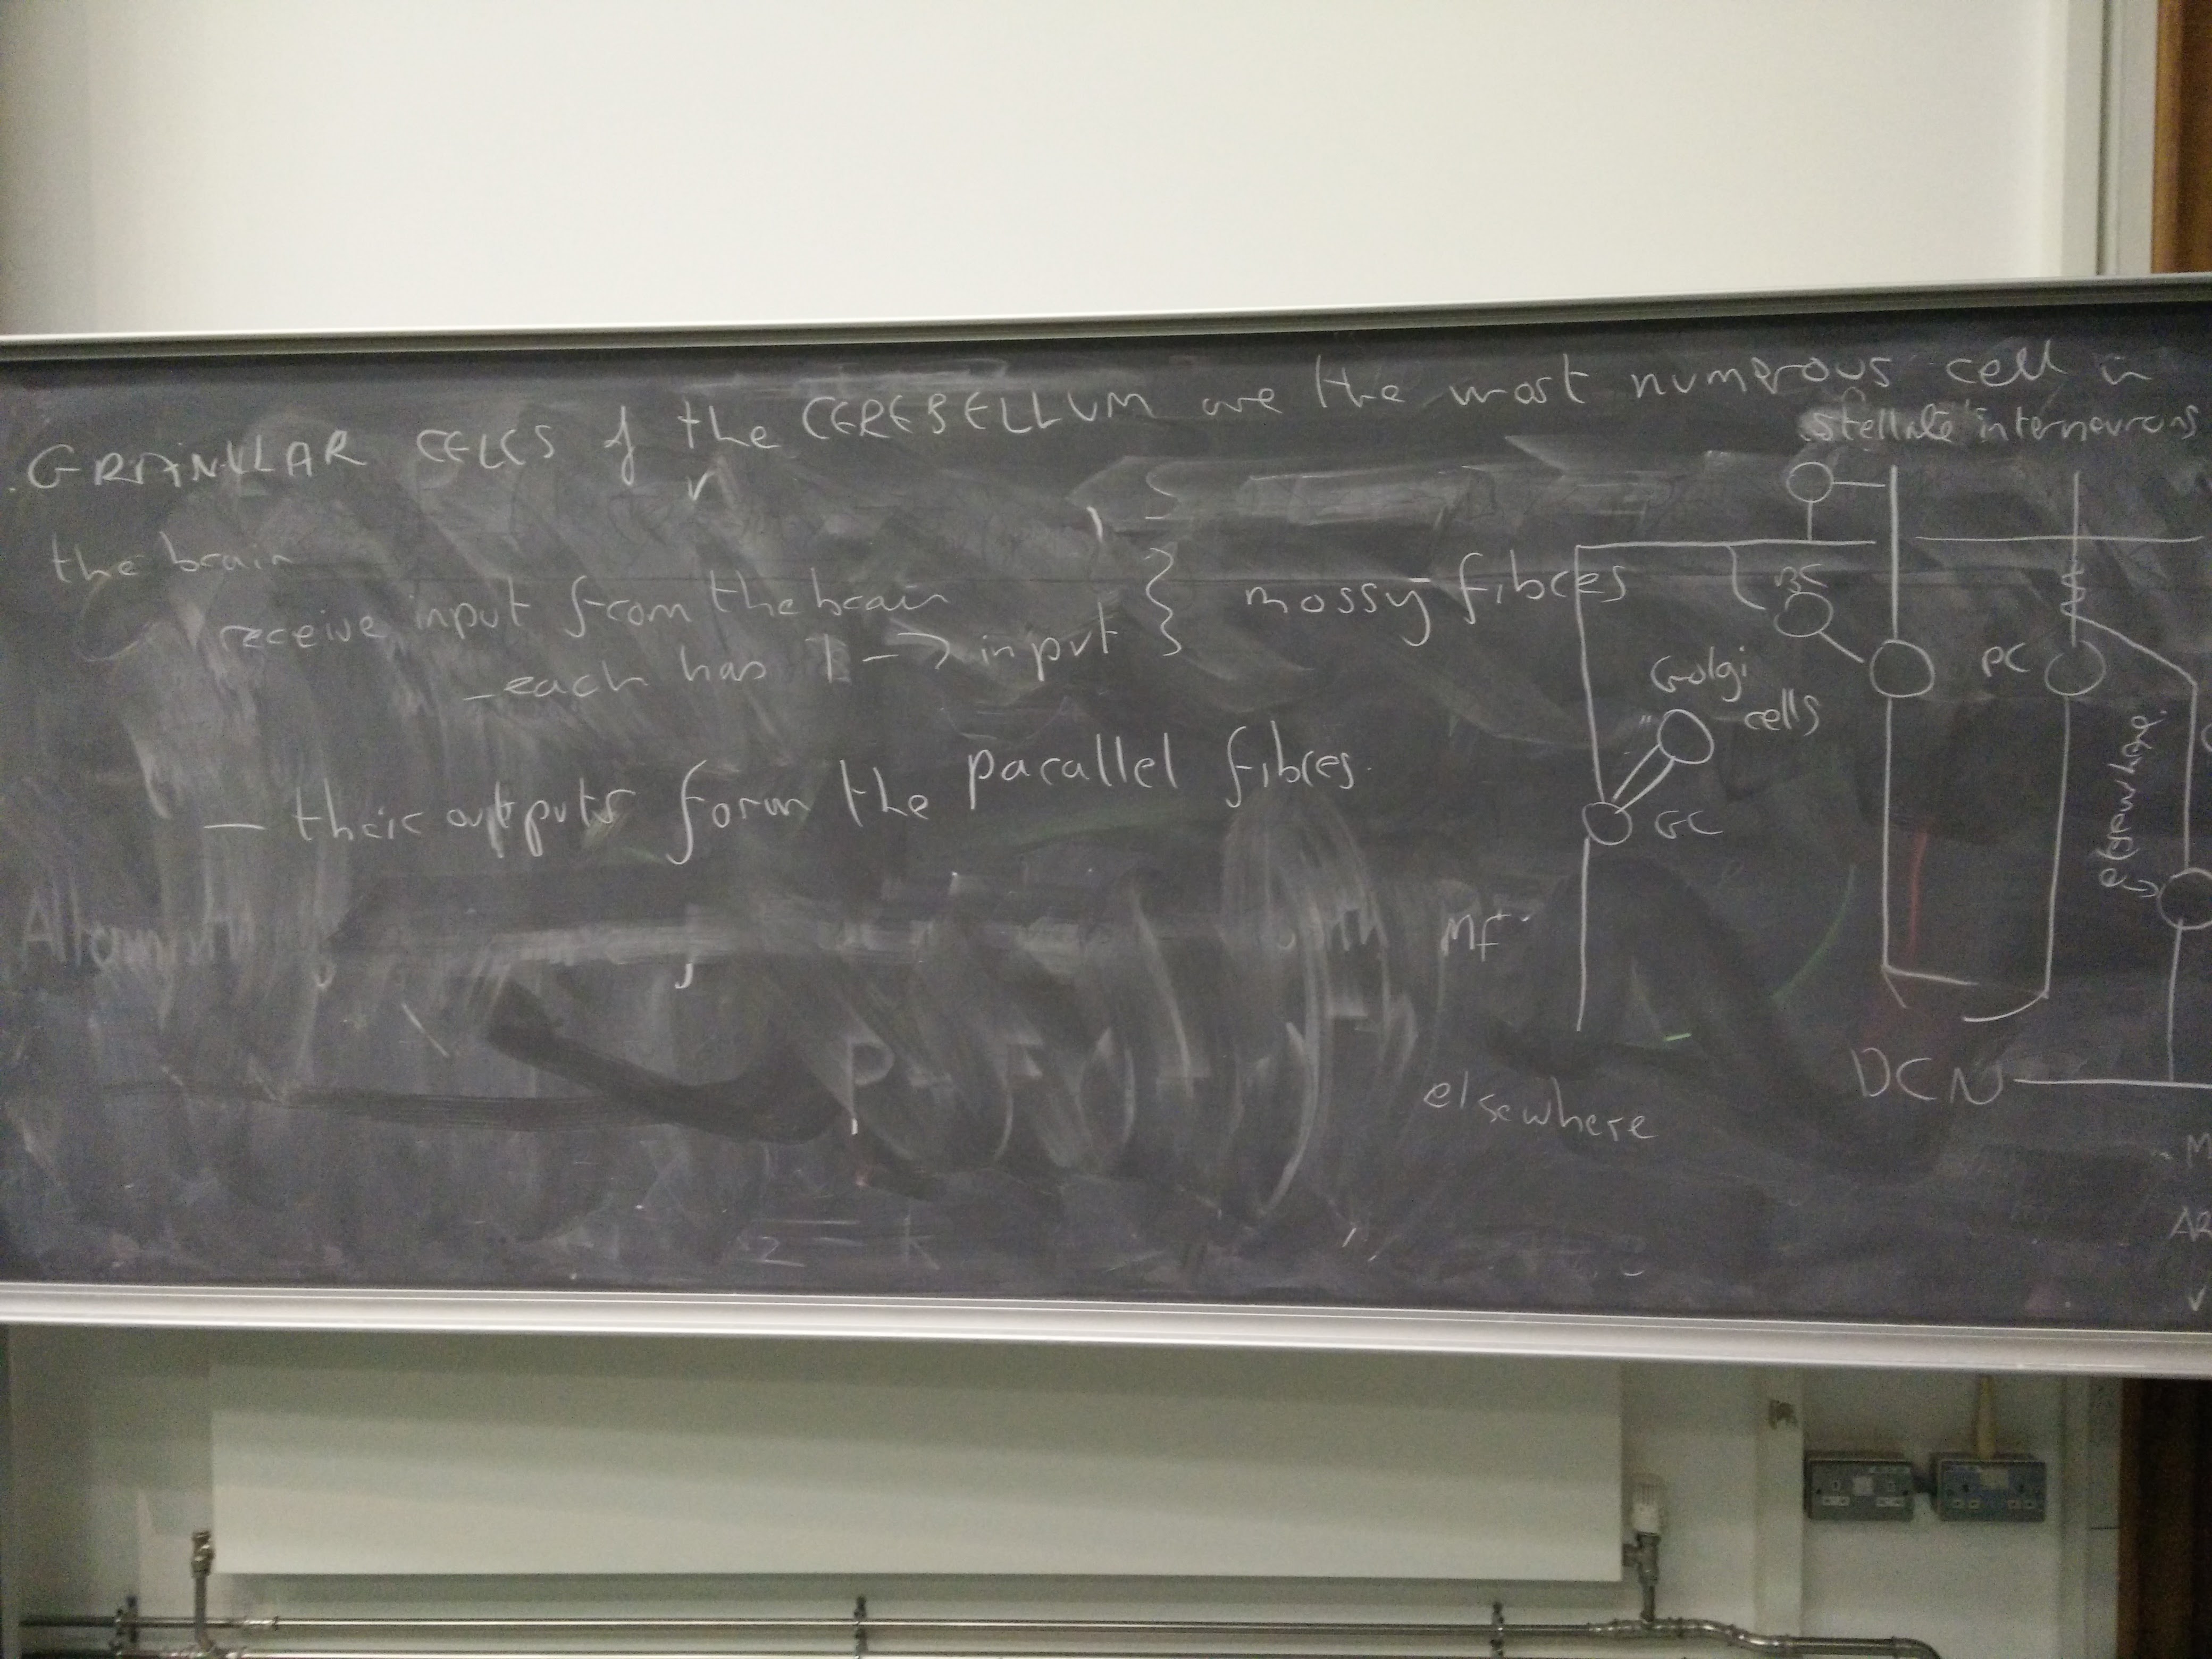 GRANULAR CELLS of the CEREBELLUM are the most numerous cell in
the brain
receive input from the brain
- each has 1 - 7 input } mossy fibres
- their outputs form the parallel fibres.
stellate interneurons
BC
PC
Golgi
cells
GC
elsewhere.
mf
elsewhere
DCN
M
AR